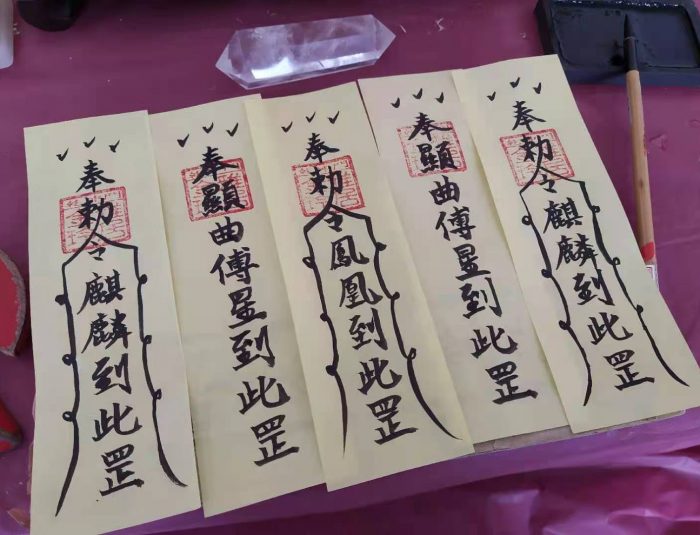 奉勅令麒麟到此罡
奉顯曲傅星到此罡
奉勅令鳳凰到此罡
奉顯曲傅星到此罡
奉勅令麒麟到此罡